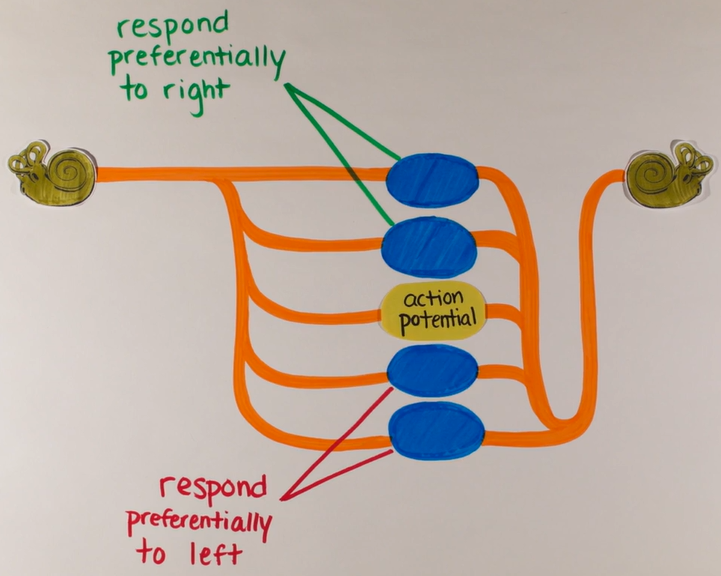 respond
preferentially
to right
action
potential
respond
preferentially
to left